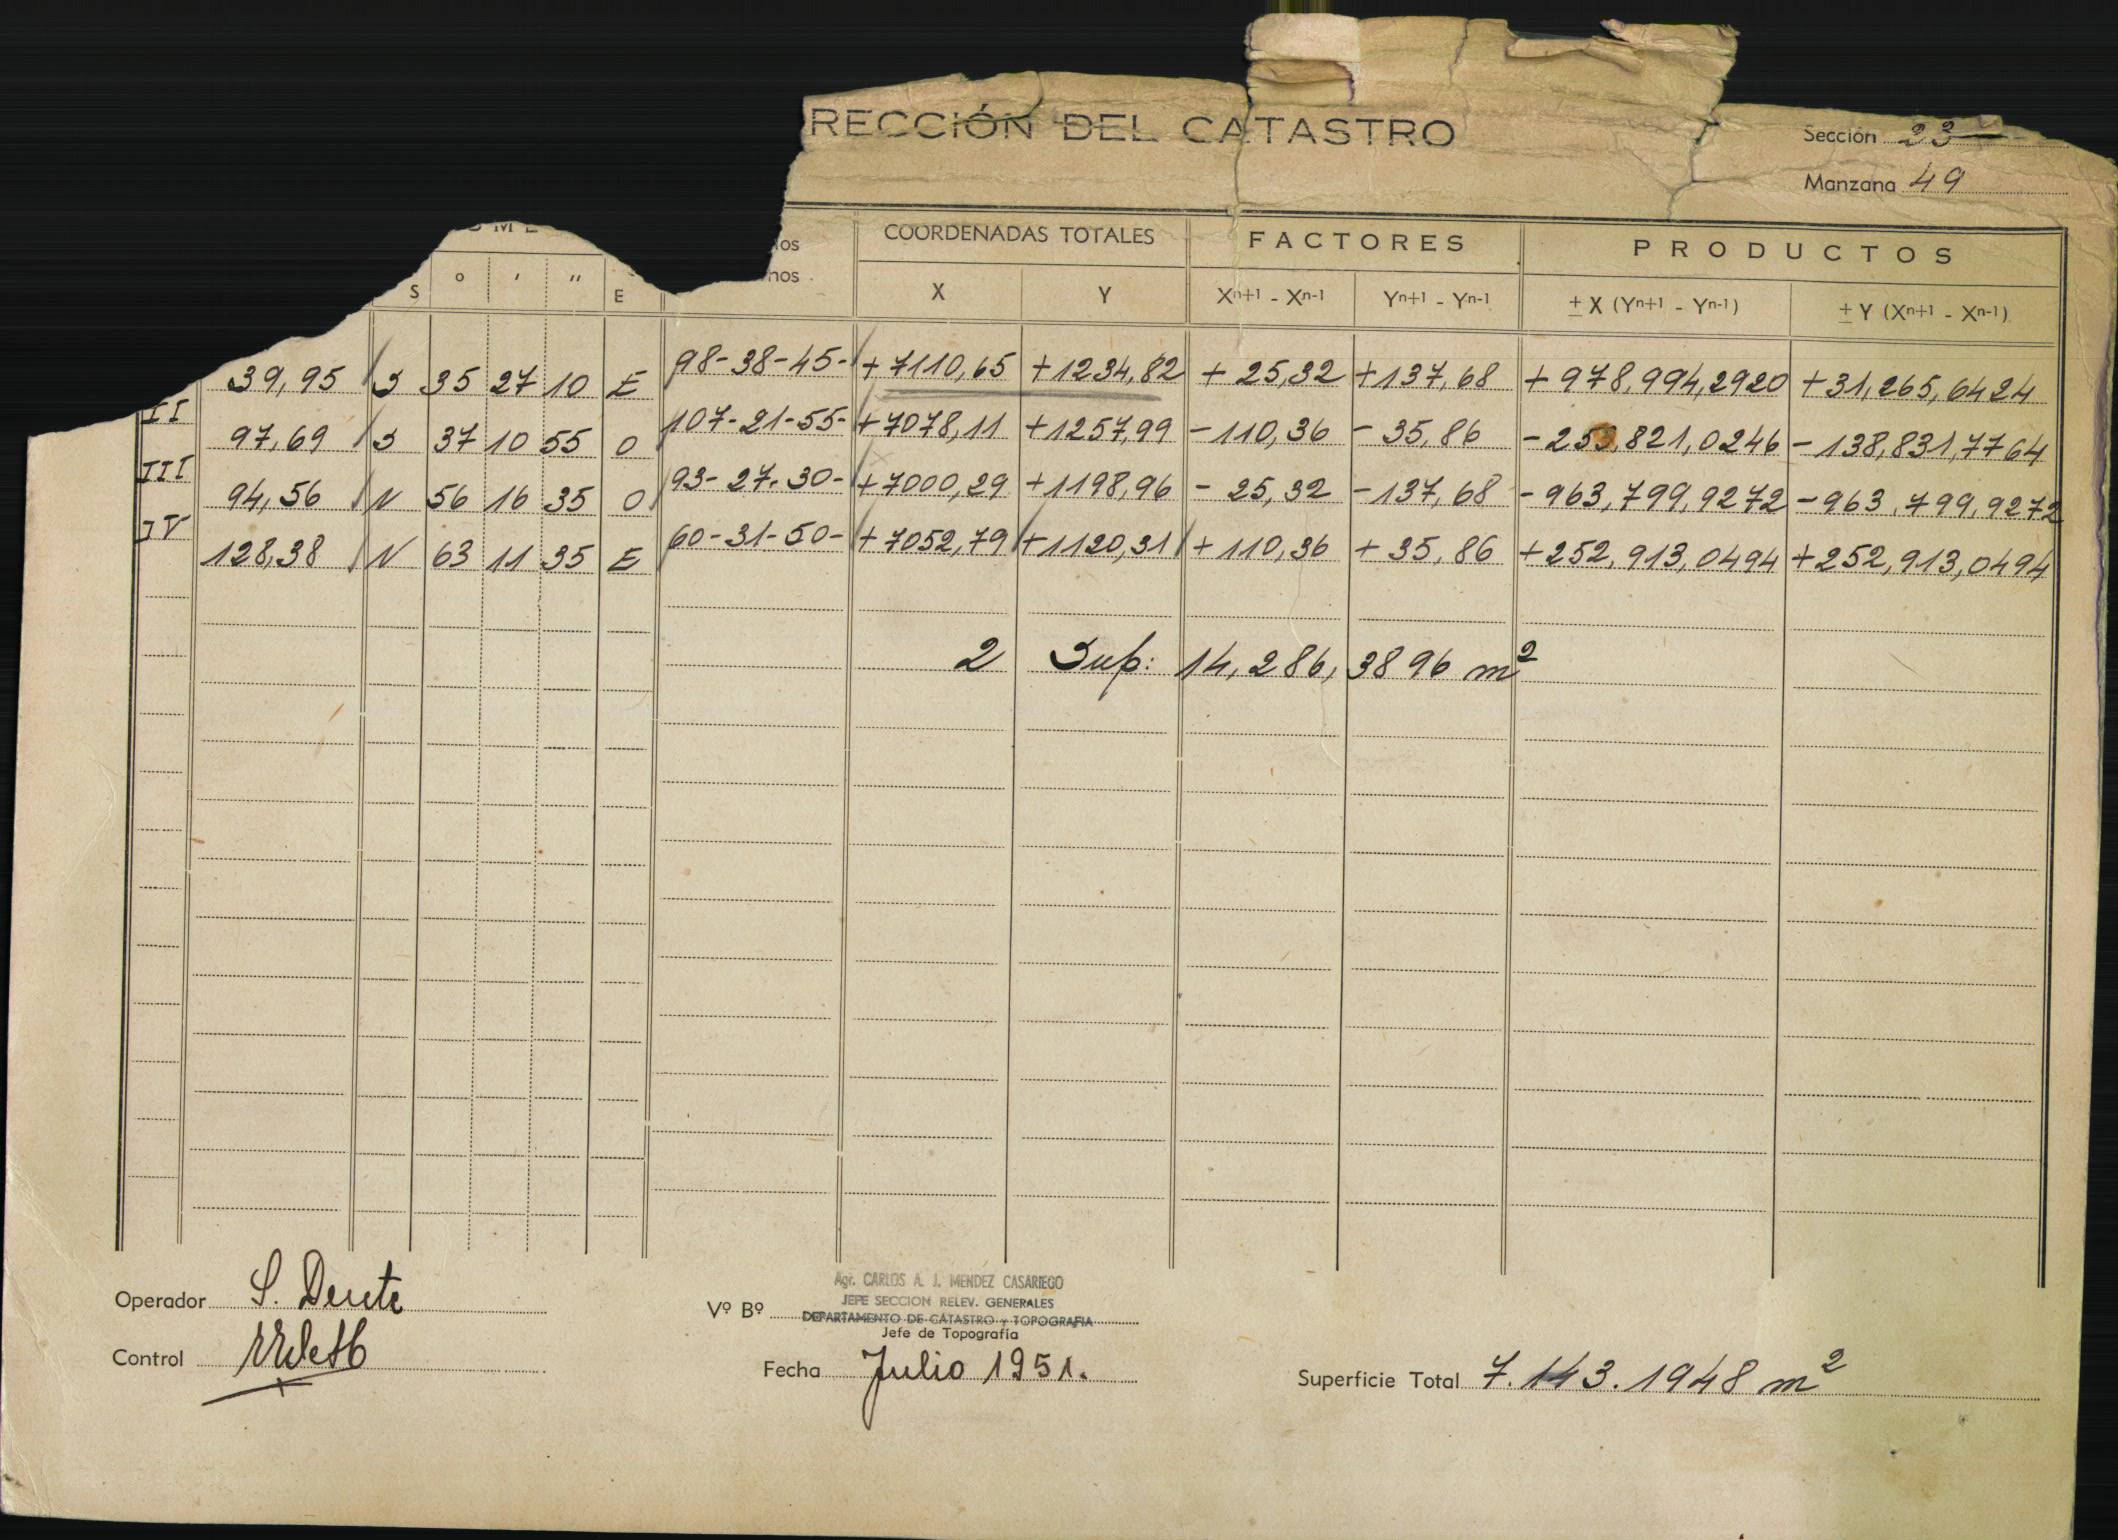 RECCIÓN DEL CATASTRO
Sección 23
Manzana 49
COORDENADAS TOTALES FACTORES PRODUCTOS
S ° ' " E X Y Xn+1 - Xn-1 Yn+1 - Yn-1 ± X (Yn+1 - Yn-1) ± Y (Xn+1 - Xn-1)
39,95 S 35 27 10 E 98-38-45- +7110,65 +1234,82 +25,32 +137,68 +978.994,2920 +31,265,6424
II 97,69 S 37 10 55 O 107-21-55- +7078,11 +1257,99 -110,36 -35,86 -253,821,0246 -138,831,7764
III 94,56 N 56 16 35 O 93-27-30- +7000,29 +1198,96 -25,32 -137,68 -963,799,9272 -963.799.9272
IV 128,38 N 63 11 35 E 60-31-50- +7052,79 +1120,31 +110,36 +35,86 +252,913,0494 +252,913,0494
2 Sup: 14,286,3896 m²
Operador S. Dente
Control
Vº Bº
Agr. CARLOS A. J. MENDEZ CASARIEGO
JEFE SECCION RELEV. GENERALES
DEPARTAMENTO DE CATASTRO y TOPOGRAFIA
Jefe de Topografía
Fecha Julio 1951.
Superficie Total 7.143.1948 m²